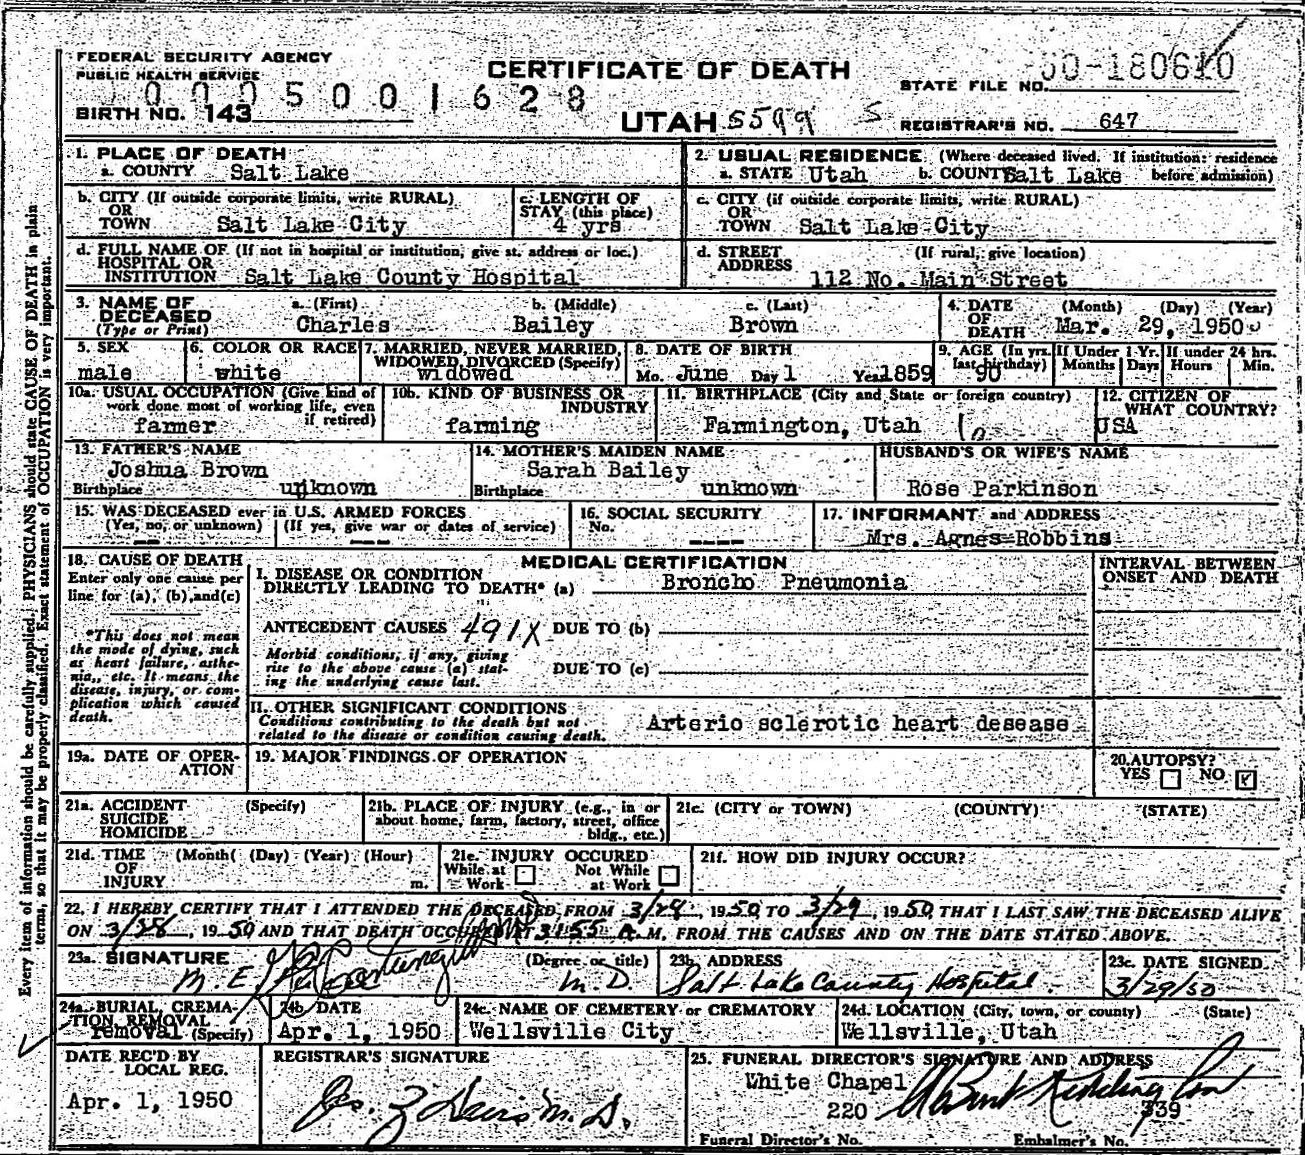 FEDERAL SECURITY AGENCY
PUBLIC HEALTH SERVICE
CERTIFICATE OF DEATH
STATE FILE NO. 50-180610
0 0 0 5 0 0 1 6 2 8
BIRTH NO. 143
UTAH 5599 S
REGISTRAR'S NO. 647
1. PLACE OF DEATH
a. COUNTY Salt Lake
2. USUAL RESIDENCE (Where deceased lived. If institution: residence before admission)
a. STATE Utah b. COUNTY Salt Lake
b. CITY (If outside corporate limits, write RURAL)
OR
TOWN Salt Lake City
c. LENGTH OF
STAY (this place)
4 yrs
c. CITY (if outside corporate limits, write RURAL)
OR
TOWN Salt Lake City
d. FULL NAME OF (If not in hospital or institution, give st. address or loc.)
HOSPITAL OR
INSTITUTION Salt Lake County Hospital
d. STREET (If rural, give location)
ADDRESS
112 No. Main Street
3. NAME OF
DECEASED
(Type or Print)
a. (First) b. (Middle) c. (Last)
Charles Bailey Brown
4. DATE (Month) (Day) (Year)
OF
DEATH Mar. 29, 1950
5. SEX
male
6. COLOR OR RACE
white
7. MARRIED, NEVER MARRIED,
WIDOWED, DIVORCED (Specify)
widowed
8. DATE OF BIRTH
Mo. June Day 1 Yr. 1859
9. AGE (In yrs.
last birthday)
90
If Under 1 Yr.
Months Days
If under 24 hrs.
Hours Min.
10a. USUAL OCCUPATION (Give kind of
work done most of working life, even
if retired)
farmer
10b. KIND OF BUSINESS OR
INDUSTRY
farming
11. BIRTHPLACE (City and State or foreign country)
Farmington, Utah
12. CITIZEN OF
WHAT COUNTRY?
USA
13. FATHER'S NAME
Joshua Brown
Birthplace unknown
14. MOTHER'S MAIDEN NAME
Sarah Bailey
Birthplace unknown
HUSBAND'S OR WIFE'S NAME
Rose Parkinson
15. WAS DECEASED ever in U.S. ARMED FORCES
(Yes, no, or unknown) (If yes, give war or dates of service)
-- ---
16. SOCIAL SECURITY
No. ----
17. INFORMANT and ADDRESS
Mrs. Agnes Robbins
18. CAUSE OF DEATH
Enter only one cause per
line for (a), (b), and (c)
*This does not mean
the mode of dying, such
as heart failure, asthe-
nia, etc. It means the
disease, injury, or com-
plication which caused
death.
MEDICAL CERTIFICATION
I. DISEASE OR CONDITION
DIRECTLY LEADING TO DEATH* (a) Broncho Pneumonia
ANTECEDENT CAUSES 491X DUE TO (b)
Morbid conditions, if any, giving
rise to the above cause (a) stat-
ing the underlying cause last.
DUE TO (c)
II. OTHER SIGNIFICANT CONDITIONS
Conditions contributing to the death but not
related to the disease or condition causing death.
Arterio sclerotic heart desease
INTERVAL BETWEEN
ONSET AND DEATH
19a. DATE OF OPER-
ATION
19. MAJOR FINDINGS OF OPERATION
20. AUTOPSY?
YES NO x
21a. ACCIDENT (Specify)
SUICIDE
HOMICIDE
21b. PLACE OF INJURY (e.g., in or
about home, farm, factory, street, office
bldg., etc.)
21c. (CITY or TOWN) (COUNTY) (STATE)
21d. TIME (Month) (Day) (Year) (Hour)
OF
INJURY m.
21e. INJURY OCCURED
While at Work Not While at Work
21f. HOW DID INJURY OCCUR?
22. I HEREBY CERTIFY THAT I ATTENDED THE DECEASED FROM 3/28, 1950 TO 3/29, 1950, THAT I LAST SAW THE DECEASED ALIVE
ON 3/28, 1950 AND THAT DEATH OCCURRED AT 3:55 A M, FROM THE CAUSES AND ON THE DATE STATED ABOVE.
23a. SIGNATURE (Degree or title)
M. E. M.D.
23b. ADDRESS
Salt Lake County Hospital
23c. DATE SIGNED
3/29/50
24a. BURIAL, CREMA-
TION REMOVAL
removal (Specify)
24b. DATE
Apr. 1, 1950
24c. NAME OF CEMETERY or CREMATORY
Wellsville City
24d. LOCATION (City, town, or county) (State)
Wellsville, Utah
DATE REC'D BY
LOCAL REG.
Apr. 1, 1950
REGISTRAR'S SIGNATURE
M.D.
25. FUNERAL DIRECTOR'S SIGNATURE AND ADDRESS
White Chapel
220 339
Funeral Director's No. Embalmer's No.
Every item of information should be carefully supplied. PHYSICIANS should state CAUSE OF DEATH in plain
terms, so that it may be properly classified. Exact statement of OCCUPATION is very important.